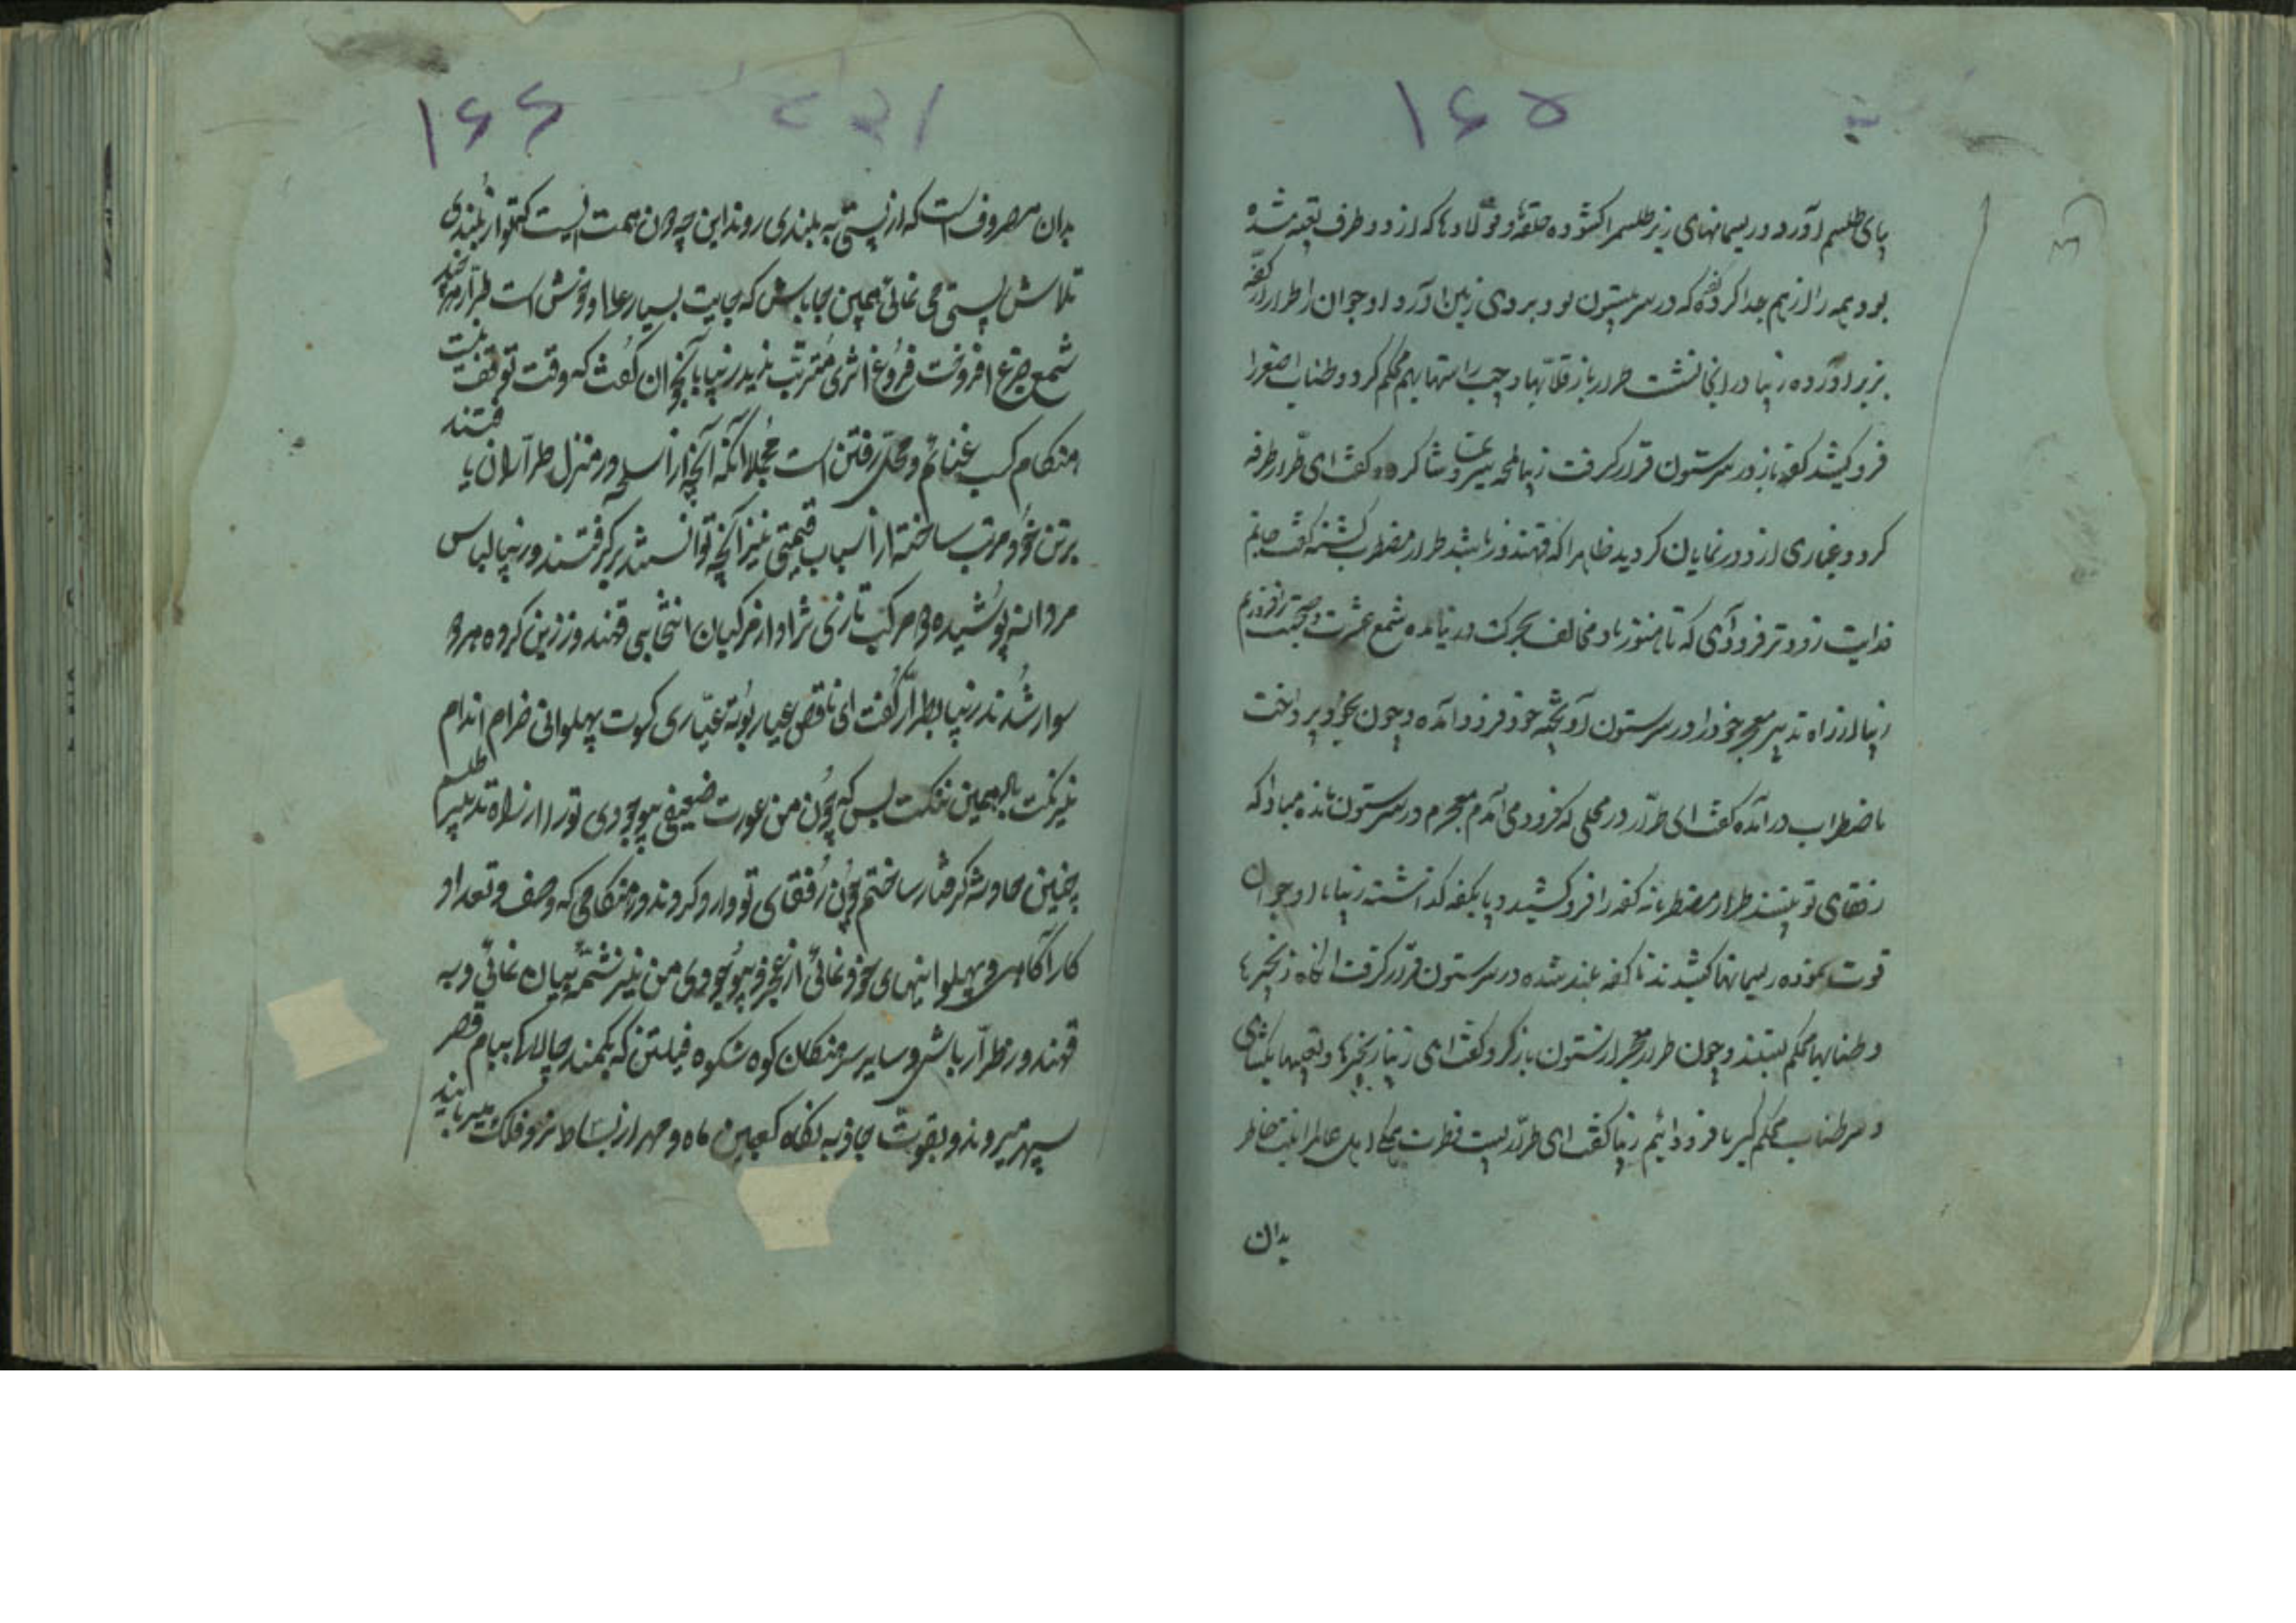 ۱۶۵
پای طلسم آورد و ریسمانهای زیر طلسم را کشوده حلقه و فولادها که از دو طرف تعبیه شده
بود همه را از هم جدا کرد کفه که در سر ستون بود بروی زمین آورد و جوان را طرار از کفه
بزیر آورده زیبا در انجا نشست طرار باز قلابها و چپ راستها بهم محکم کرد و طناب
فرو کشید کفه باز در سر ستون قرار گرفت زیبا لمحه سیر و تماشا کرده گفت ای طرار طرفه
کرد و غباری از دور نمایان کردید ظاهرا که قهندور باشد طرار مضطرب گشته گفت جانم
فدایت زودتر فرود آی که تا هنوز باد مخالف بحرکت در نیامده شمع عشرت و صحبت برافروزیم
زیبا از راه تدبیر معجر خود را در سر ستون آویخته خود فرود آمده و چون بخود پرداخت
باضطراب در آمده گفت ای طرار در محلی که فرود می آمدم معجرم در سر ستون مانده مبادا که
رفقای تو ببینند طرار مضطربانه کفه را فرو کشید و پا بکفه گذاشته زیبا با جوان
قوت نموده ریسمانها کشیدند تا کفه بلند شده در سر ستون قرار گرفت انگاه زنجیرها
و طنابها محکم بستند و چون طرار معجر از ستون باز کرد گفت ای زیبا زنجیرها و تعبیها بکشای
و سر طناب محکم گیر تا فرود آئیم زیبا گفت ای طرار پست فطرت اهل عالم را نیت خاطر
بدان
۱۶۶
بدان مصروف است که از پستی به بلندی روند این چه دون همت ایست که تو از بلندی
تلاش پستی می نمائی همچین جا باش که جایت بسیار علا و خوش است طرار هر چند
شمع جزع افروخت فروغ اثری مترتب ندید زیبا با جوان گفت که وقت توقف نیست
هنگام کسب غنائم و محل رفتن است مجملا آنکه آنچه از اسلحه در منزل طراران یافتند
برتن خود مرتب ساخته از اسباب قیمتی نیز آنچه توانستند برگرفتند و زیبا لباس
مردانه پوشیده دو مرکب تازی نژاد از مرکبان انتخابی قهندور زین کرده هر دو
سوار شدند زیبا بطرار گفت ای ناقص عیار بوته عیاری کسوت پهلوانی خرام اندام
نیرنکت را همین نکبت بس که چون من عورت ضعیفی بیوجودی تو را از راه تدبیر طلسم
بچنین حادثه گرفتار ساختم چون رفقای تو وارد کردند در هنکامی که وصف و تعداد
کار آگاهی و پهلوانیهای خود نمائی از عجز و بیوجودی من نیز شمه بیان نمائی و به
قهندور طرار باش و سایر سرهنکان کوه شکوه فیلتن که بکمند چالاک ببام قصر
سپهر میروند و بقوت جاذبه نگاه کعبین ماه و مهر از بساط نرد فلک میربایند